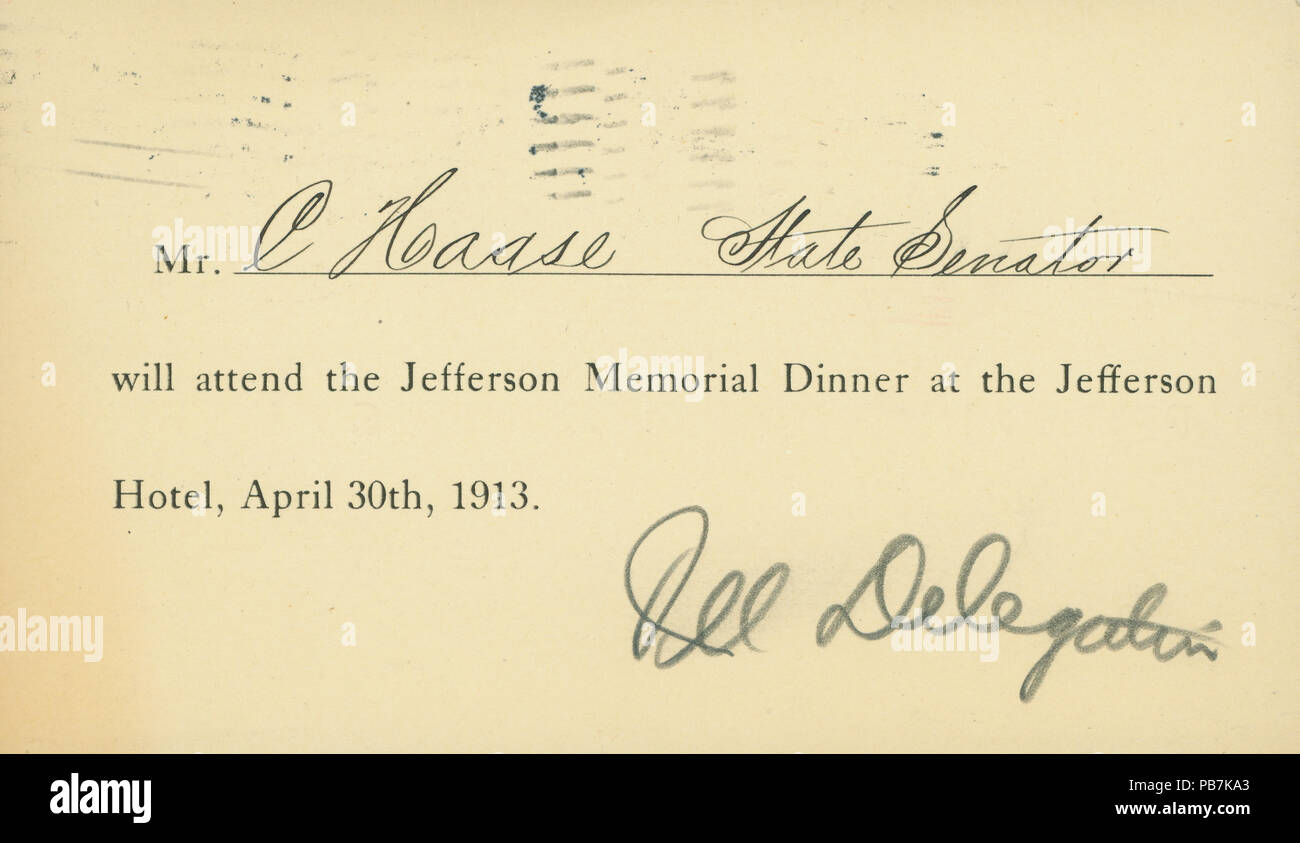 Mr. C Haase State Senator
will attend the Jefferson Memorial Dinner at the Jefferson
Hotel, April 30th, 1913.
Ill Delegation
alamy
Image ID: PB7KA3
www.alamy.com